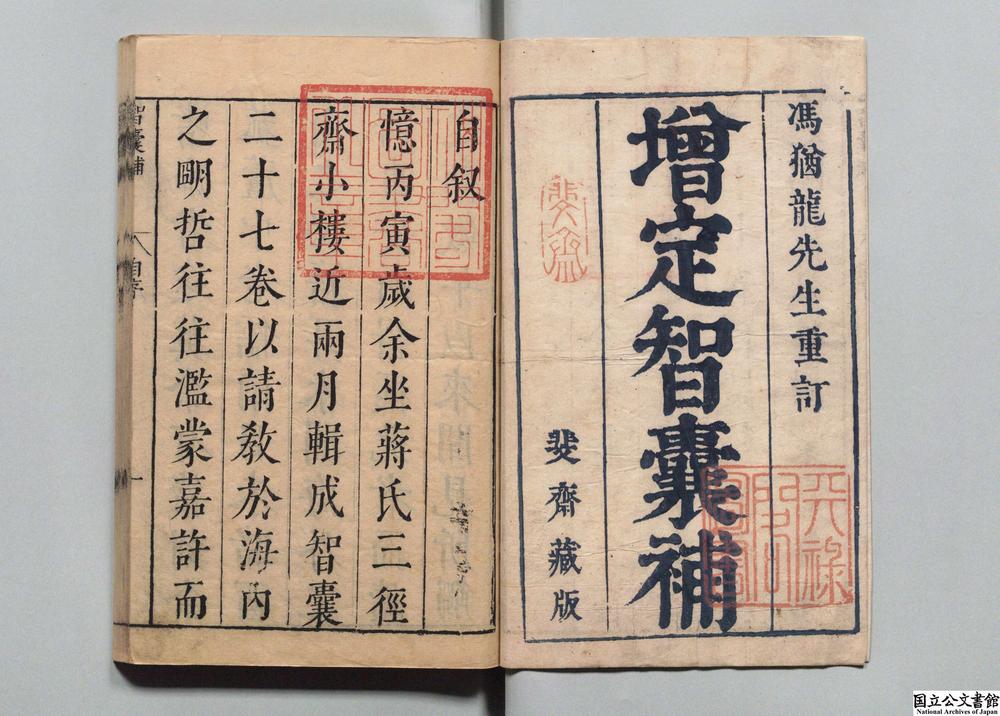 馮猶龍先生重訂
增定智囊補
斐齋藏版
斐齋
自叙
憶丙寅歲余坐蔣氏三徑
齋小樓近兩月輯成智囊
二十七卷以請敎於海内
之明哲往往濫蒙嘉許而
智囊補
自序
一
国立公文書館
National Archives of Japan